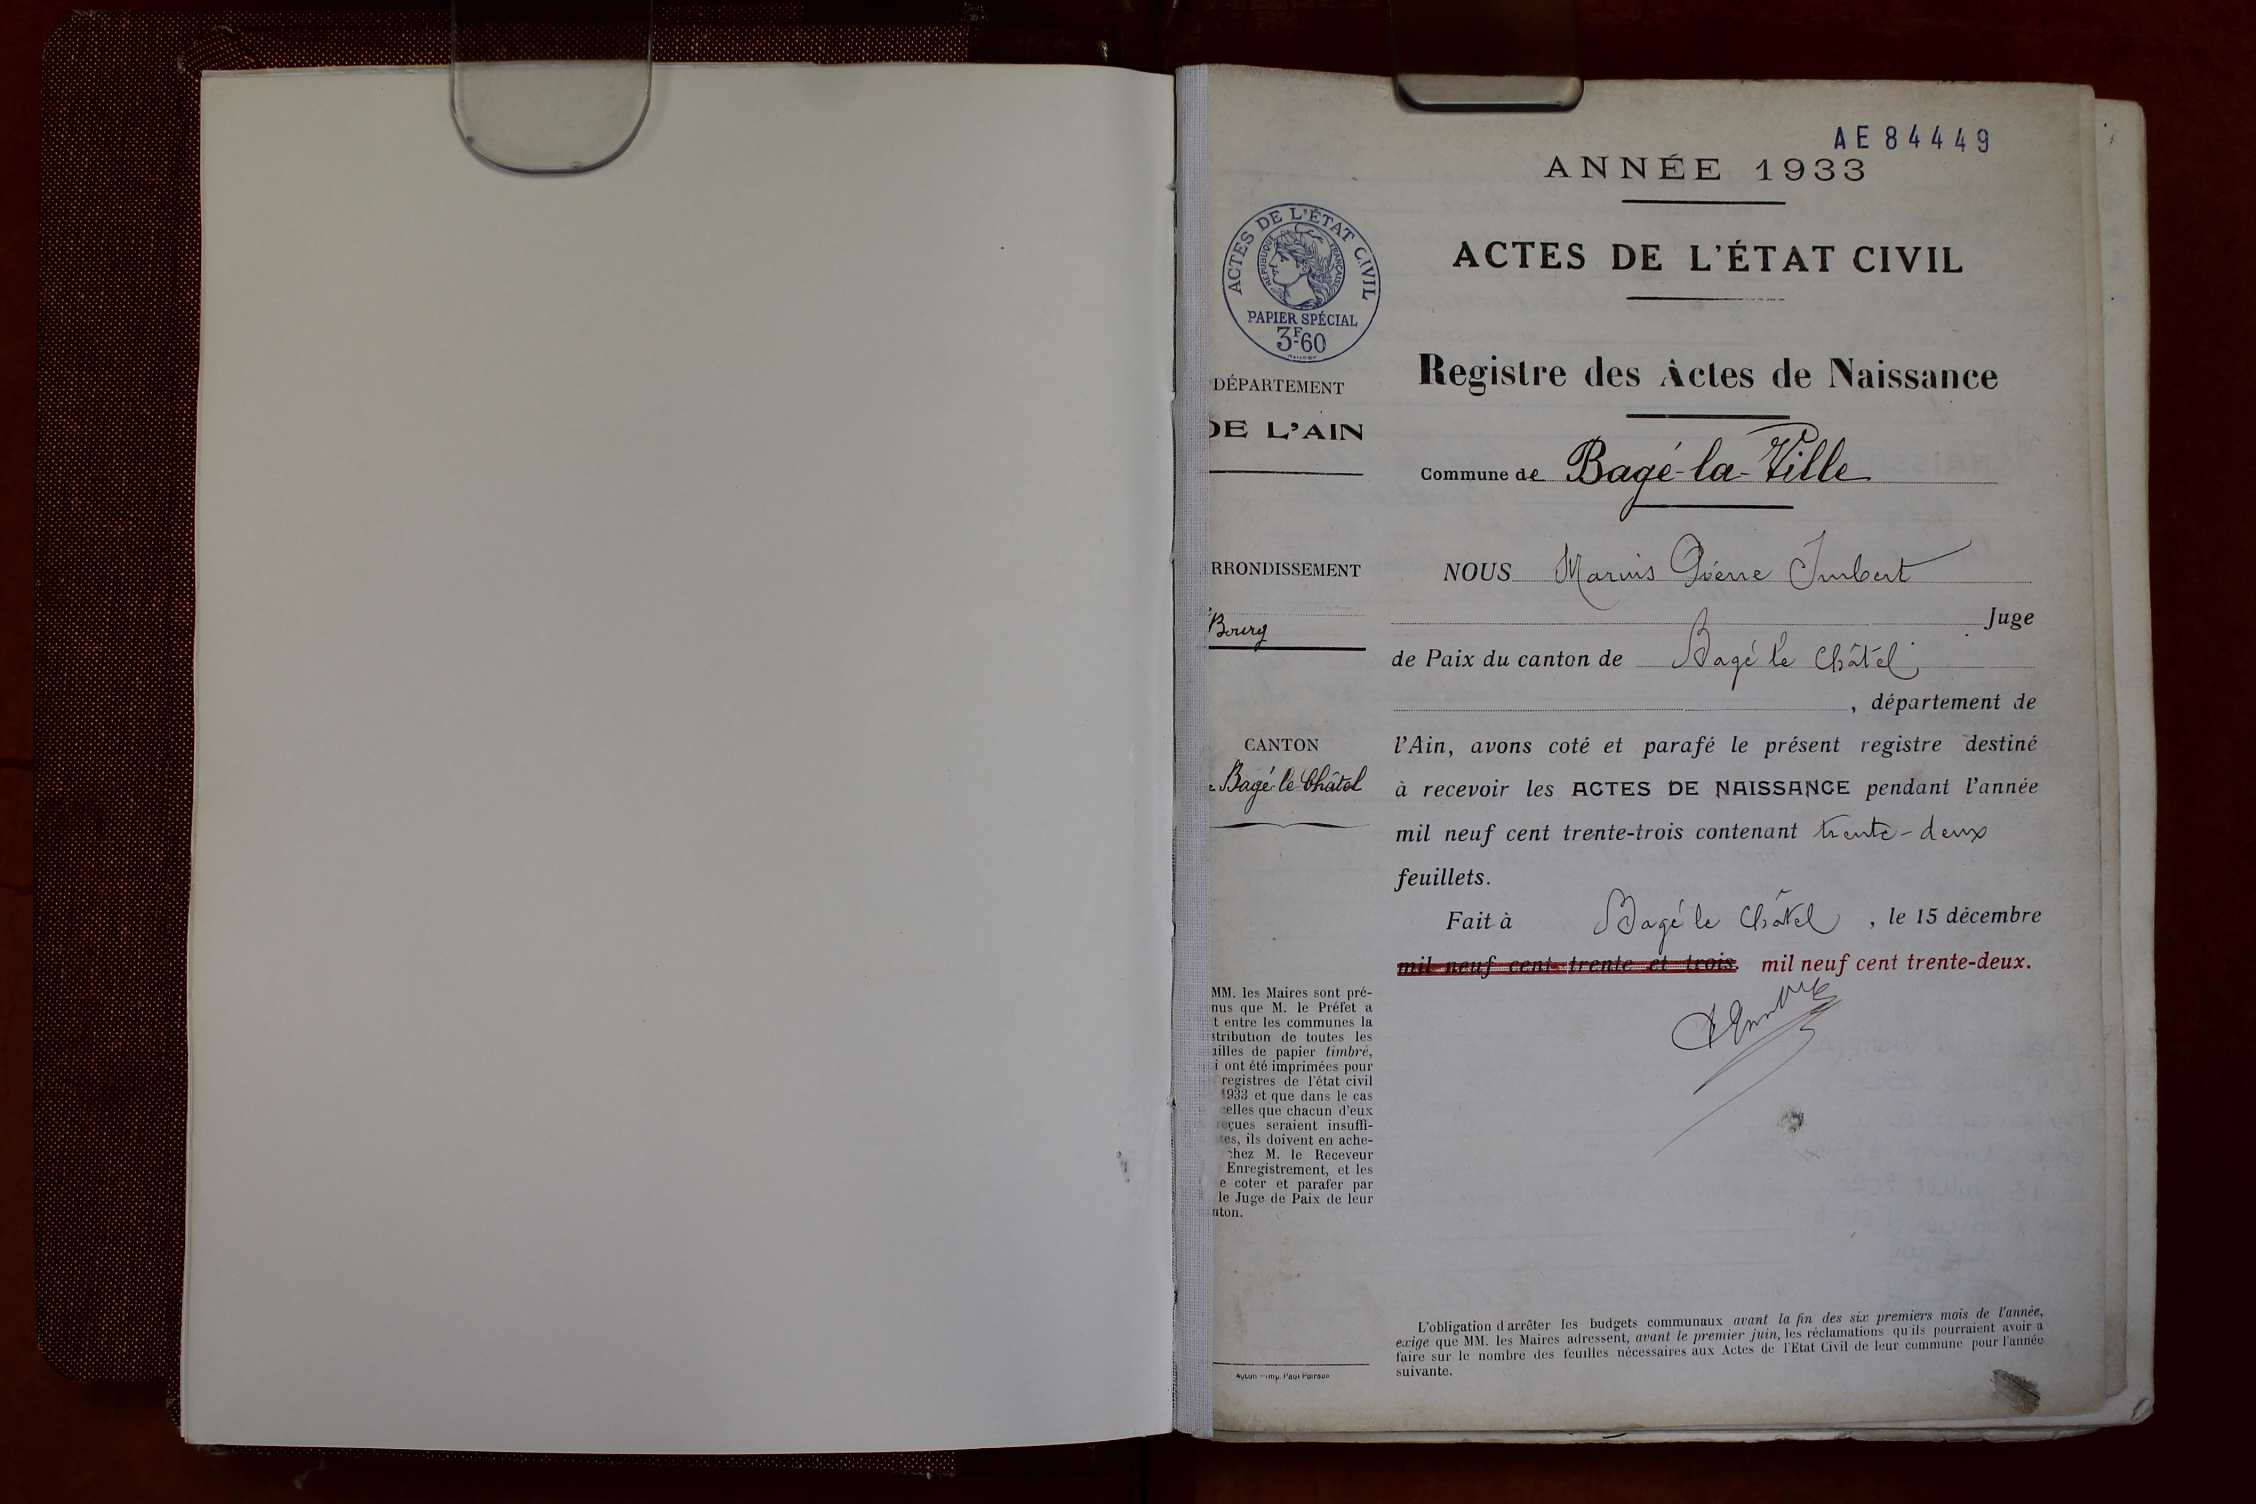 AE 84449
ANNÉE 1933
ACTES DE L'ÉTAT CIVIL
RÉPUBLIQUE FRANÇAISE
PAPIER SPÉCIAL
3F.60
ACTES DE L'ÉTAT CIVIL
Registre des Actes de Naissance
DÉPARTEMENT
DE L'AIN
Commune de Bagé-la-Ville
RRONDISSEMENT
Bourg
CANTON
Bagé-le-Châtel
NOUS Marius Pierre Imbert
Juge
de Paix du canton de Bagé le Châtel
, département de
l'Ain, avons coté et parafé le présent registre destiné
à recevoir les ACTES DE NAISSANCE pendant l'année
mil neuf cent trente-trois contenant trente-deux
feuillets.
Fait à Bagé le Châtel, le 15 décembre
mil neuf cent trente et trois. mil neuf cent trente-deux.
MM. les Maires sont pré-
nus que M. le Préfet a
t entre les communes la
stribution de toutes les
uilles de papier timbré,
i ont été imprimées pour
registres de l'état civil
1933 et que dans le cas
celles que chacun d'eux
reçues seraient insuffi-
tes, ils doivent en ache-
chez M. le Receveur
Enregistrement, et les
e coter et parafer par
le Juge de Paix de leur
nton.
L'obligation d'arrêter les budgets communaux avant la fin des six premiers mois de l'année,
exige que MM. les Maires adressent, avant le premier juin, les réclamations qu'ils pourraient avoir à
faire sur le nombre des feuilles nécessaires aux Actes de l'Etat Civil de leur commune pour l'année
suivante.